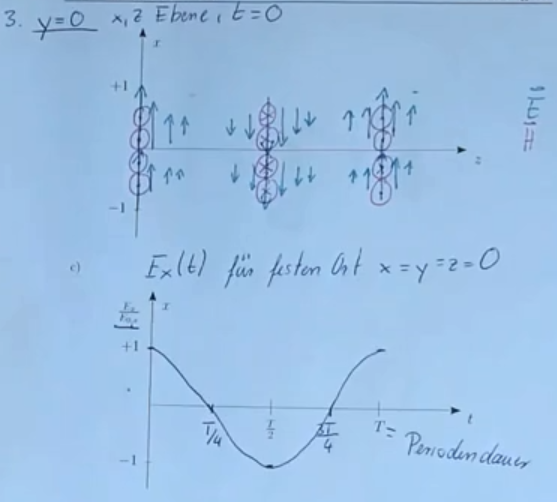 3. y=0 x, z Ebene, t=0
x
+1
z
-1
E
H
c) Eₓ(t) für festen Ort x=y=z=0
x
+1
t
T/4
T/2
3T/4
T = Periodendauer
-1